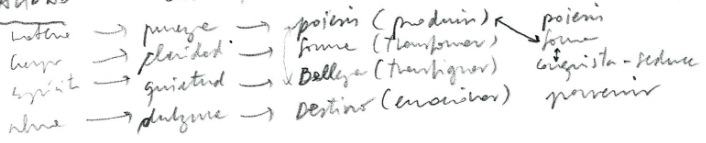 materia → pureza → poiesis (producir) poiesis
cuerpo → claridad → forma (transformar) forma
espíritu → quietud → Belleza (transfigurar) conquista - seduce
alma → dulzura → Destino (emocionar) porvenir